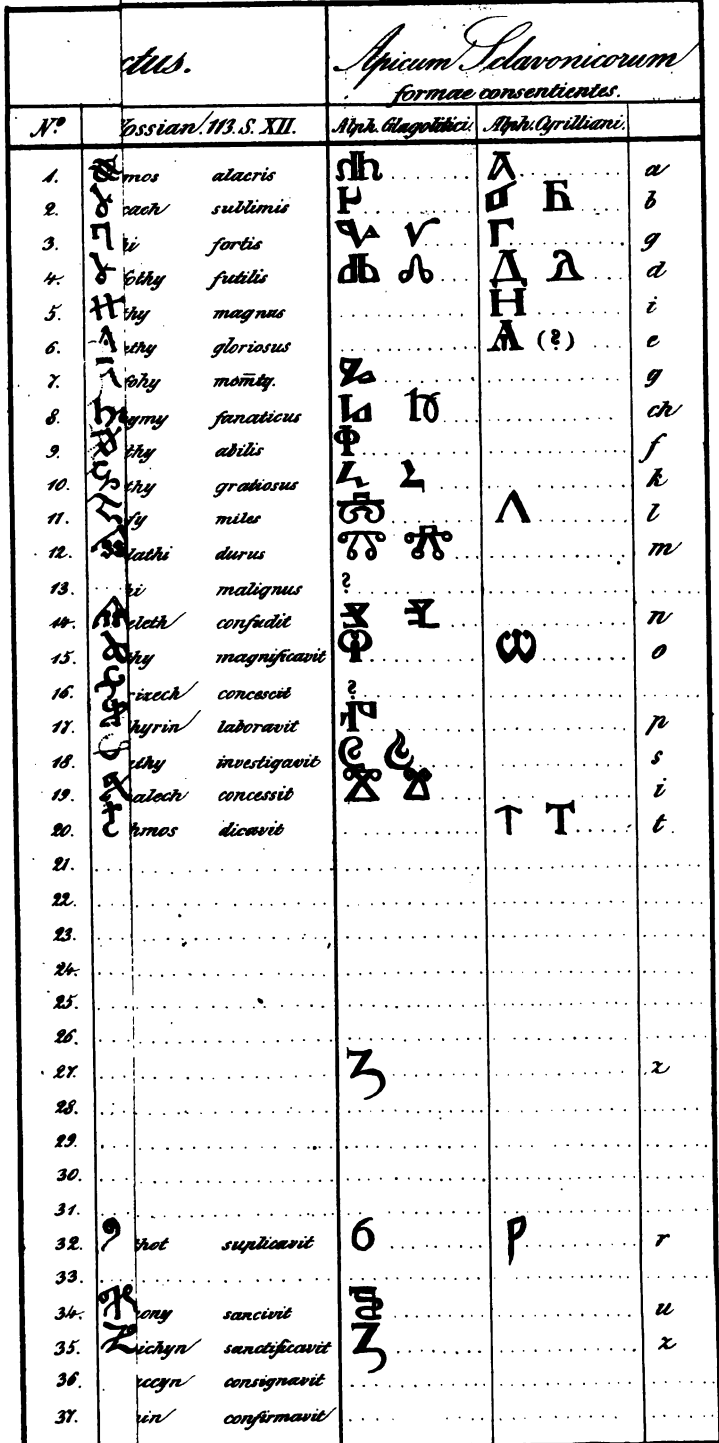 ctus. Apicum Sclavonicorum
formae consentientes.
Nº ossian. 113. S. XII. Alph. Glagolitici. Alph. Cyrilliani.
1. mos alacris a
2. cach sublimis Б b
3. i fortis Г g
4. othy futilis Д d
5. thy magnus Н i
6. ethy gloriosus Ѧ (?) e
7. fohy g
8. gmy fanaticus ch
9. thy abilis f
10. thy gratiosus k
11. fy miles Λ l
12. lathi durus m
13. hi malignus ?
14. eleth confudit n
15. thy magnificavit Ѡ o
16. rixech concescit ?
17. hyrin laboravit p
18. ethy investigavit s
19. alech concessit i
20. hmos dicavit Т t
21.
22.
23.
24.
25.
26.
27. z
28.
29.
30.
31.
32. thot suplicavit r
33.
34. ony sancivit u
35. ichyn sanctificavit z
36. ccyn consignavit
37. in confirmavit